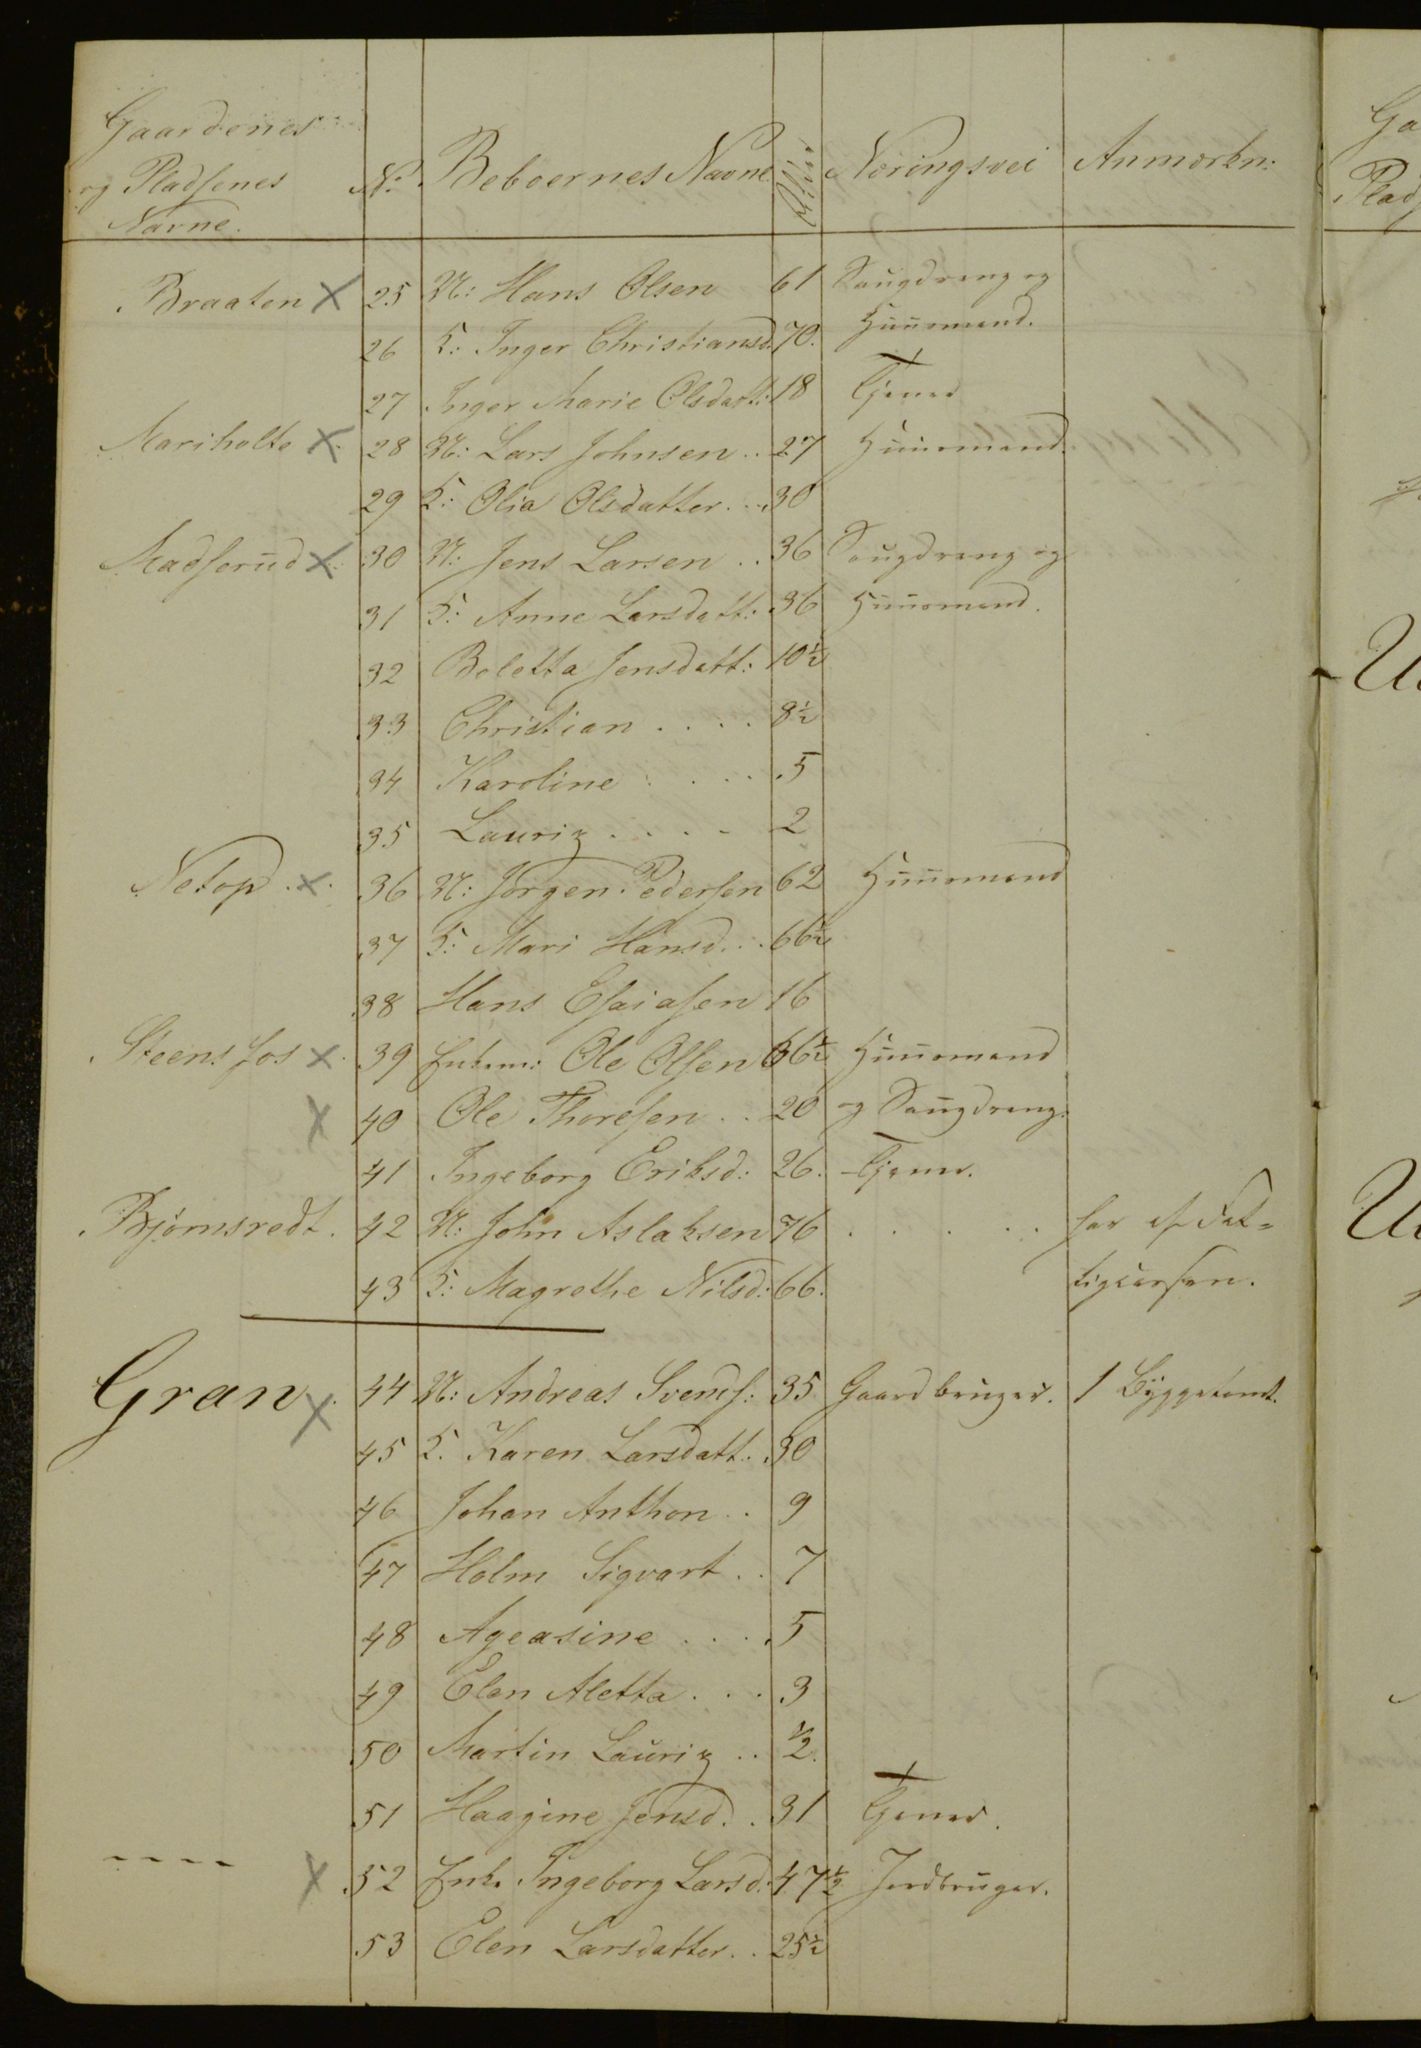 Gaardenes
og Pladsenes
Navne.
No Beboernes Navne Alder Næringsvei Anmærkn:
Braaten X 25 M: Hans Olsen 61 Saugdreng og
26 K: Inger Christiansd. 70. Huusmand.
27 Inger Marie Olsdatt: 18 Tjener
Mariholte X 28 M: Lars Johnsen .. 27 Huusmand.
29 K: Olia Olsdatter ... 30
Madserud X 30 M: Jens Larsen .. 36 Saugdreng og
31 K: Anne Larsdatt: 36 Huusmand.
32 Boletta Jensdatt: 10½
33 Christian .... 8½
34 Karoline .... 5
35 Lauriz .... 2
Netop . X . 36 M: Jörgen Pedersen 62 Huusmand
37 K: Mari Hansd... 66½
38 Hans Esaiasen 16
Steensfos X . 39 Enkem: Ole Olsen 66½ Huusmand
X 40 Ole Thoresen .. 20 og Saugdreng.
41 Ingeborg Eriksd: 26. Tjener.
Bjørnsredt. 42 M: John Aslaksen 76 . . . . . har af Fat-
43 K: Magrethe Nilsd: 66. tigcassen.
Gran X 44 M: Andreas Svends: 35 Gaardbruger. 1 Byggetomt.
45 K. Karen Larsdatt. 30
46 Johan Anthon .. 9
47 Holm Sigvart .. 7
48 Ageasine .... 5
49 Elen Aletta ... 3
50 Martin Lauriz .. ½.
51 Haagine Jensd. . 31 Tjener.
---- X 52 Enke Ingeborg Larsd: 47½ Jordbruger.
53 Elen Larsdatter .. 25½